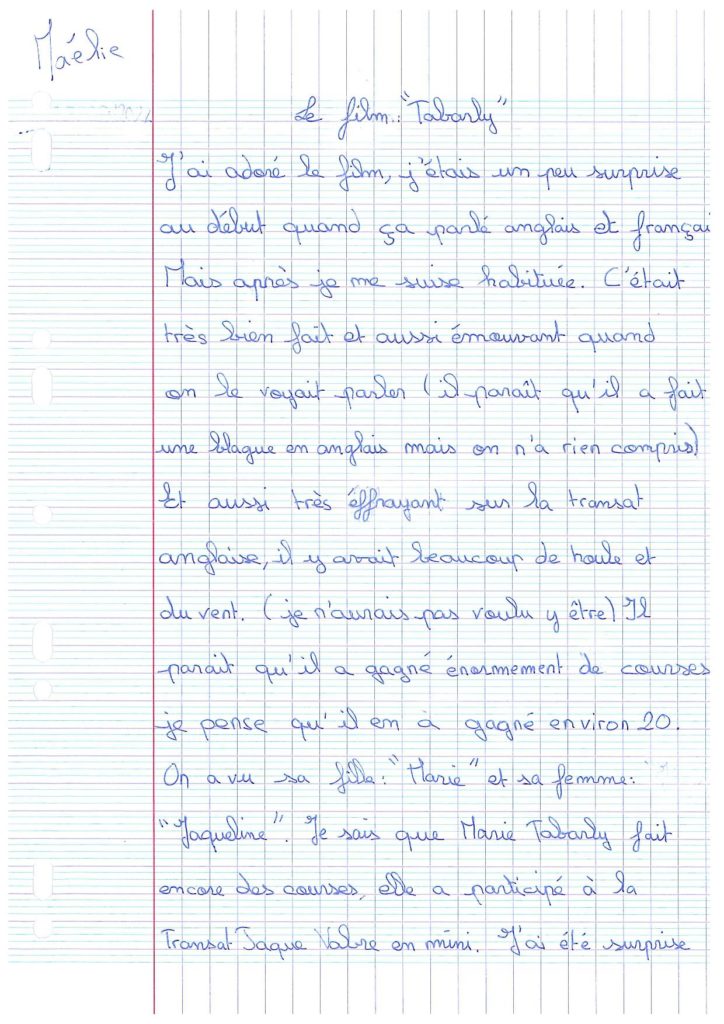 Maélie
Le film : "Tabarly"
J'ai adoré le film, j'étais un peu surprise
au début quand ça parlé anglais et françai
Mais après je me suise habituée. C'était
très bien fait et aussi émouvant quand
on le voyait parler (il paraît qu'il a fait
une blague en anglais mais on n'a rien compris)
Et aussi très éffrayant sur la transat
anglaise, il y avait beaucoup de houle et
du vent. (je n'aurais pas voulu y être) Il
parait qu'il a gagné énormement de courses
je pense qu'il en à gagné environ 20.
On a vu sa fille : "Marie" et sa femme :
"Jaqueline". Je sais que Marie Tabarly fait
encore des courses, elle a participé à la
Transat Jaque Vabre en mini. J'ai été surprise